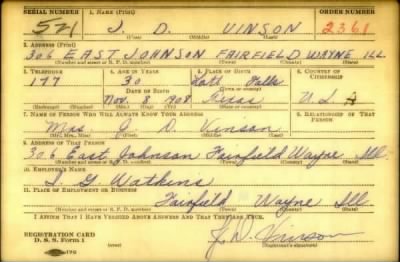 SERIAL NUMBER 1. NAME (Print) ORDER NUMBER
521 J. D. VINSON 2361
(First) (Middle) (Last)
2. ADDRESS (Print)
306 EAST JOHNSON FAIRFIELD WAYNE ILL
(Number and street or R. F. D. number) (Town) (County) (State)
3. TELEPHONE 4. AGE IN YEARS 5. PLACE OF BIRTH 6. COUNTRY OF CITIZENSHIP
177 30 Falls
DATE OF BIRTH (Town or county)
Nov 1908 Texas U. S. A
(Exchange) (Number) (Mo.) (Day) (Yr.) (State or country)
7. NAME OF PERSON WHO WILL ALWAYS KNOW YOUR ADDRESS 8. RELATIONSHIP OF THAT PERSON
Mrs J D Vinson
(Mr., Mrs., Miss) (First) (Middle) (Last)
9. ADDRESS OF THAT PERSON
306 East Johnson Fairfield Wayne Ill.
(Number and street or R. F. D. number) (Town) (County) (State)
10. EMPLOYER'S NAME
G Watkins
11. PLACE OF EMPLOYMENT OR BUSINESS
Fairfield Wayne Ill
(Number and street or R. F. D. number) (Town) (County) (State)
I AFFIRM THAT I HAVE VERIFIED ABOVE ANSWERS AND THAT THEY ARE TRUE.
REGISTRATION CARD
D. S. S. Form 1
J. D. Vinson
(Registrant's signature)